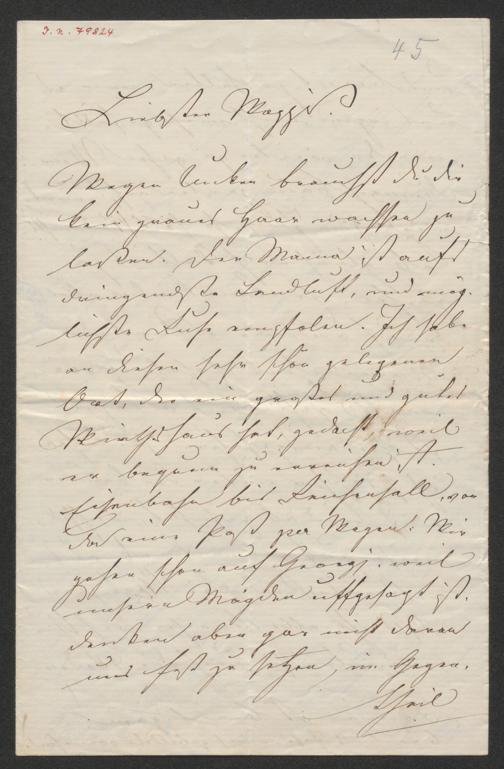 J. N. 79824
45
Liebster Wagge.
Wegen Unken brauchst du dir
kein graues Haar wachsen zu
lassen. Der Mama ist aufs
dringendste Landluft, und mög-
lichste Ruhe empfolen. Ich habe
an diesen sehr schön gelegenen
Ort, der ein großes und gutes
Wirthshaus hat, gedacht, weil
er bequem zu erreichen ist.
Eisenbahn bis Reichenhall, von
da eine Post per Wagen. Wir
gehen schon auf Georgi, weil
unsern Mägden aufgesagt ist,
denken aber gar nicht daran
uns fest zu setzen, im Gegen-
theil